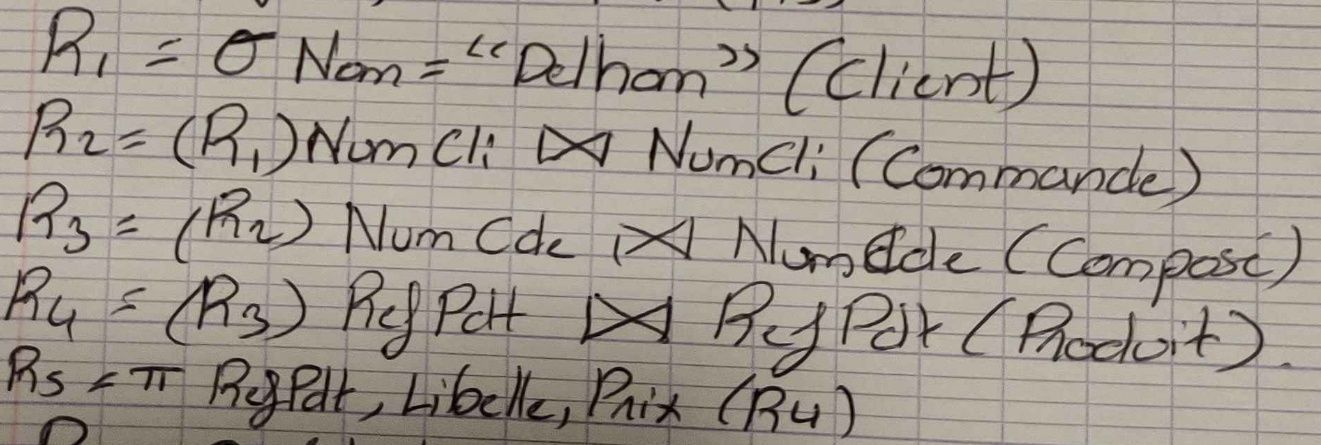 R1 = σ Nom = "Delhom" (Client)
R2 = (R1) NumCli ⋈ NumCli (Commande)
R3 = (R2) NumCde ⋈ NumCde (Composé)
R4 = (R3) RefPdt ⋈ RefPdt (Produit).
R5 = π RefPdt, Libelle, Prix (R4)